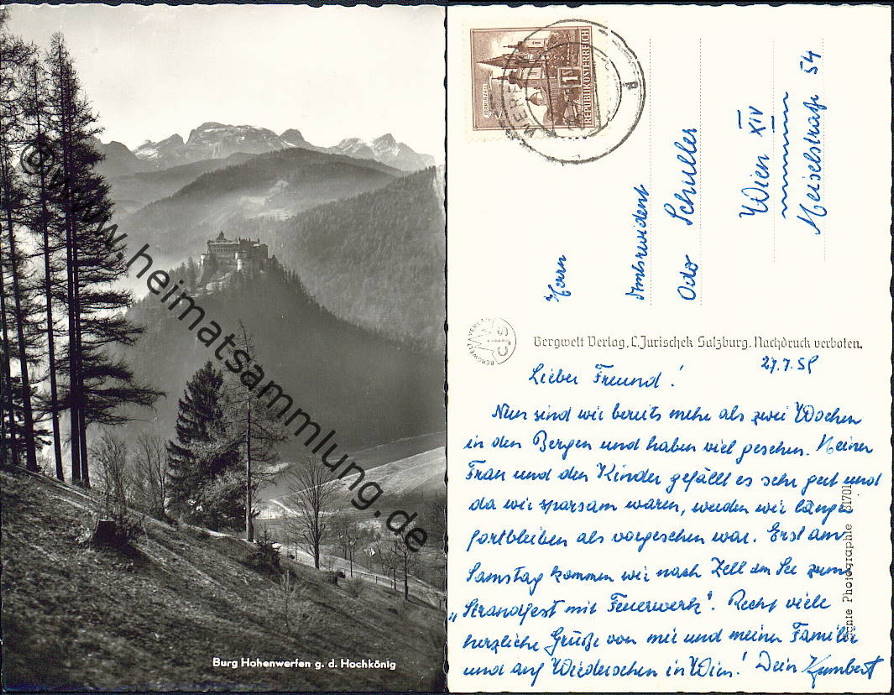 © www.heimatsammlung.de
Burg Hohenwerfen g. d. Hochkönig
REPUBLIK ÖSTERREICH
1
WERFEN
Herrn
Amtsrevident
Otto Schuller
Wien XIV
Meiselstraße 54
BERGWELT VERLAG
CJS
Bergwelt Verlag, C. Jurischek Salzburg. Nachdruck verboten.
27.7.59
Lieber Freund!
Nun sind wir bereits mehr als zwei Wochen
in den Bergen und haben viel gesehen. Meiner
Frau und den Kinder gefällt es sehr gut und
da wir sparsam waren, werden wir länger
fortbleiben als vorgesehen war. Erst am
Samstag kommen wir nach Zell am See zum
„Strandfest mit Feuerwerk". Recht viele
herzliche Grüße von mir und meiner Familie
und auf Wiedersehen in Wien! Dein
Photographie